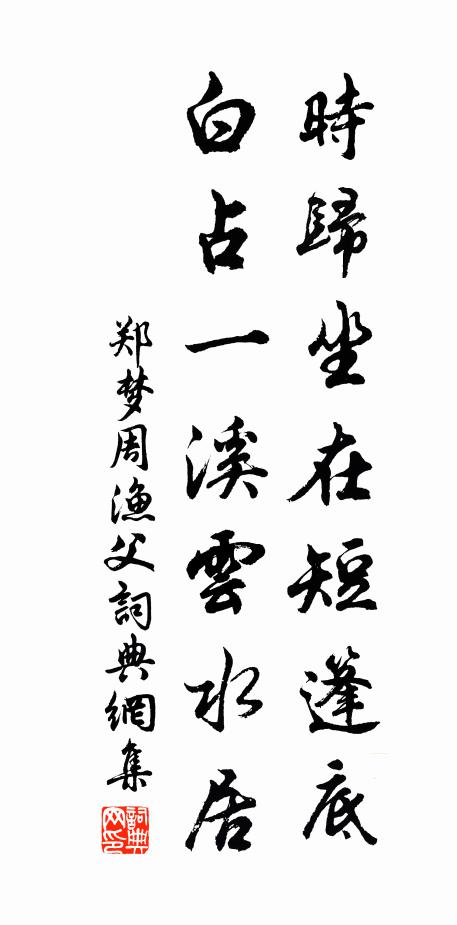 時歸坐在短篷底
白占一溪雲水居
郑梦周漁父詞典網集
詞典网印